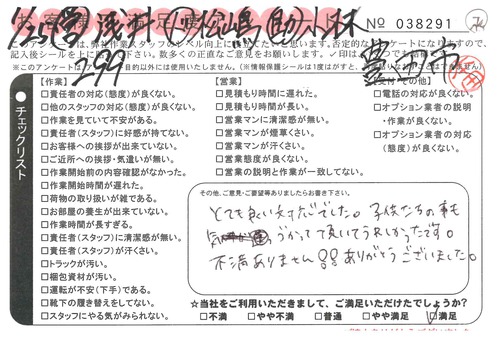 No 038291
アンケートは、弊社作業スタッフのレベル向上に
チェックリスト
【作業】
□責任者の対応(態度)が良くない。
□他のスタッフの対応(態度)が良くない。
□作業を見ていて不安がある。
□責任者(スタッフ)に好感が持てない。
□お客様への挨拶が出来ていない。
□ご近所への挨拶・気遣いが無い。
□作業開始前の内容確認がなかった。
□作業開始時間が遅れた。
□荷物の取り扱いが雑である。
□お部屋の養生が出来ていない。
□作業時間が長すぎる。
□責任者(スタッフ)に清潔感が無い。
□責任者(スタッフ)が汗くさい。
□トラックが汚い。
□梱包資材が汚い。
□運転が不安(下手)である。
□靴下の履き替えをしてない。
□スタッフにやる気がみられない。
【営業】
□見積もり時間に遅れた。
□見積もり時間が長い。
□営業マンに清潔感が無い。
□営業マンが煙草くさい。
□営業マンが汗くさい。
□営業態度が良くない。
□営業の説明と作業が一致してない。
□電話の対応が良くない。
□オプション業者の説明
・作業が良くない。
□オプション業者の対応
(態度)が良くない。
その他、ご意見・ご要望等ありましたらお書き下さい。
とても良い対応でした。子供たちの事も
気づかって頂いてうれしかったです。
不満ありません!!ありがとうございました。
☆当社をご利用いただきまして、ご満足いただけたでしょうか?
□不満 □やや不満 □普通 □やや満足 ☑満足